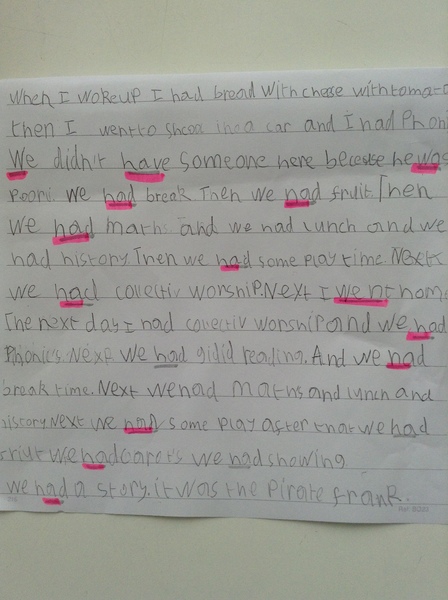 When I wokeup I had bread with chese with toma
then I went to shcool in a car and I had Phoni
We didn't have someone here becesse he was
Poori. We had break Then we had fruit. Then
we had maths and we had lunch and we
had history. Then we had some play time. Next
we had covectiv worship. Next I went hom
The next day I had covectiv worship and we had
Phonics. Next we had gidid reading. And we had
break time. Next we had maths and lunch and
history Next we had some play after that we had
friut we had carots we had showing
we had a story. it was the Pirate frank.